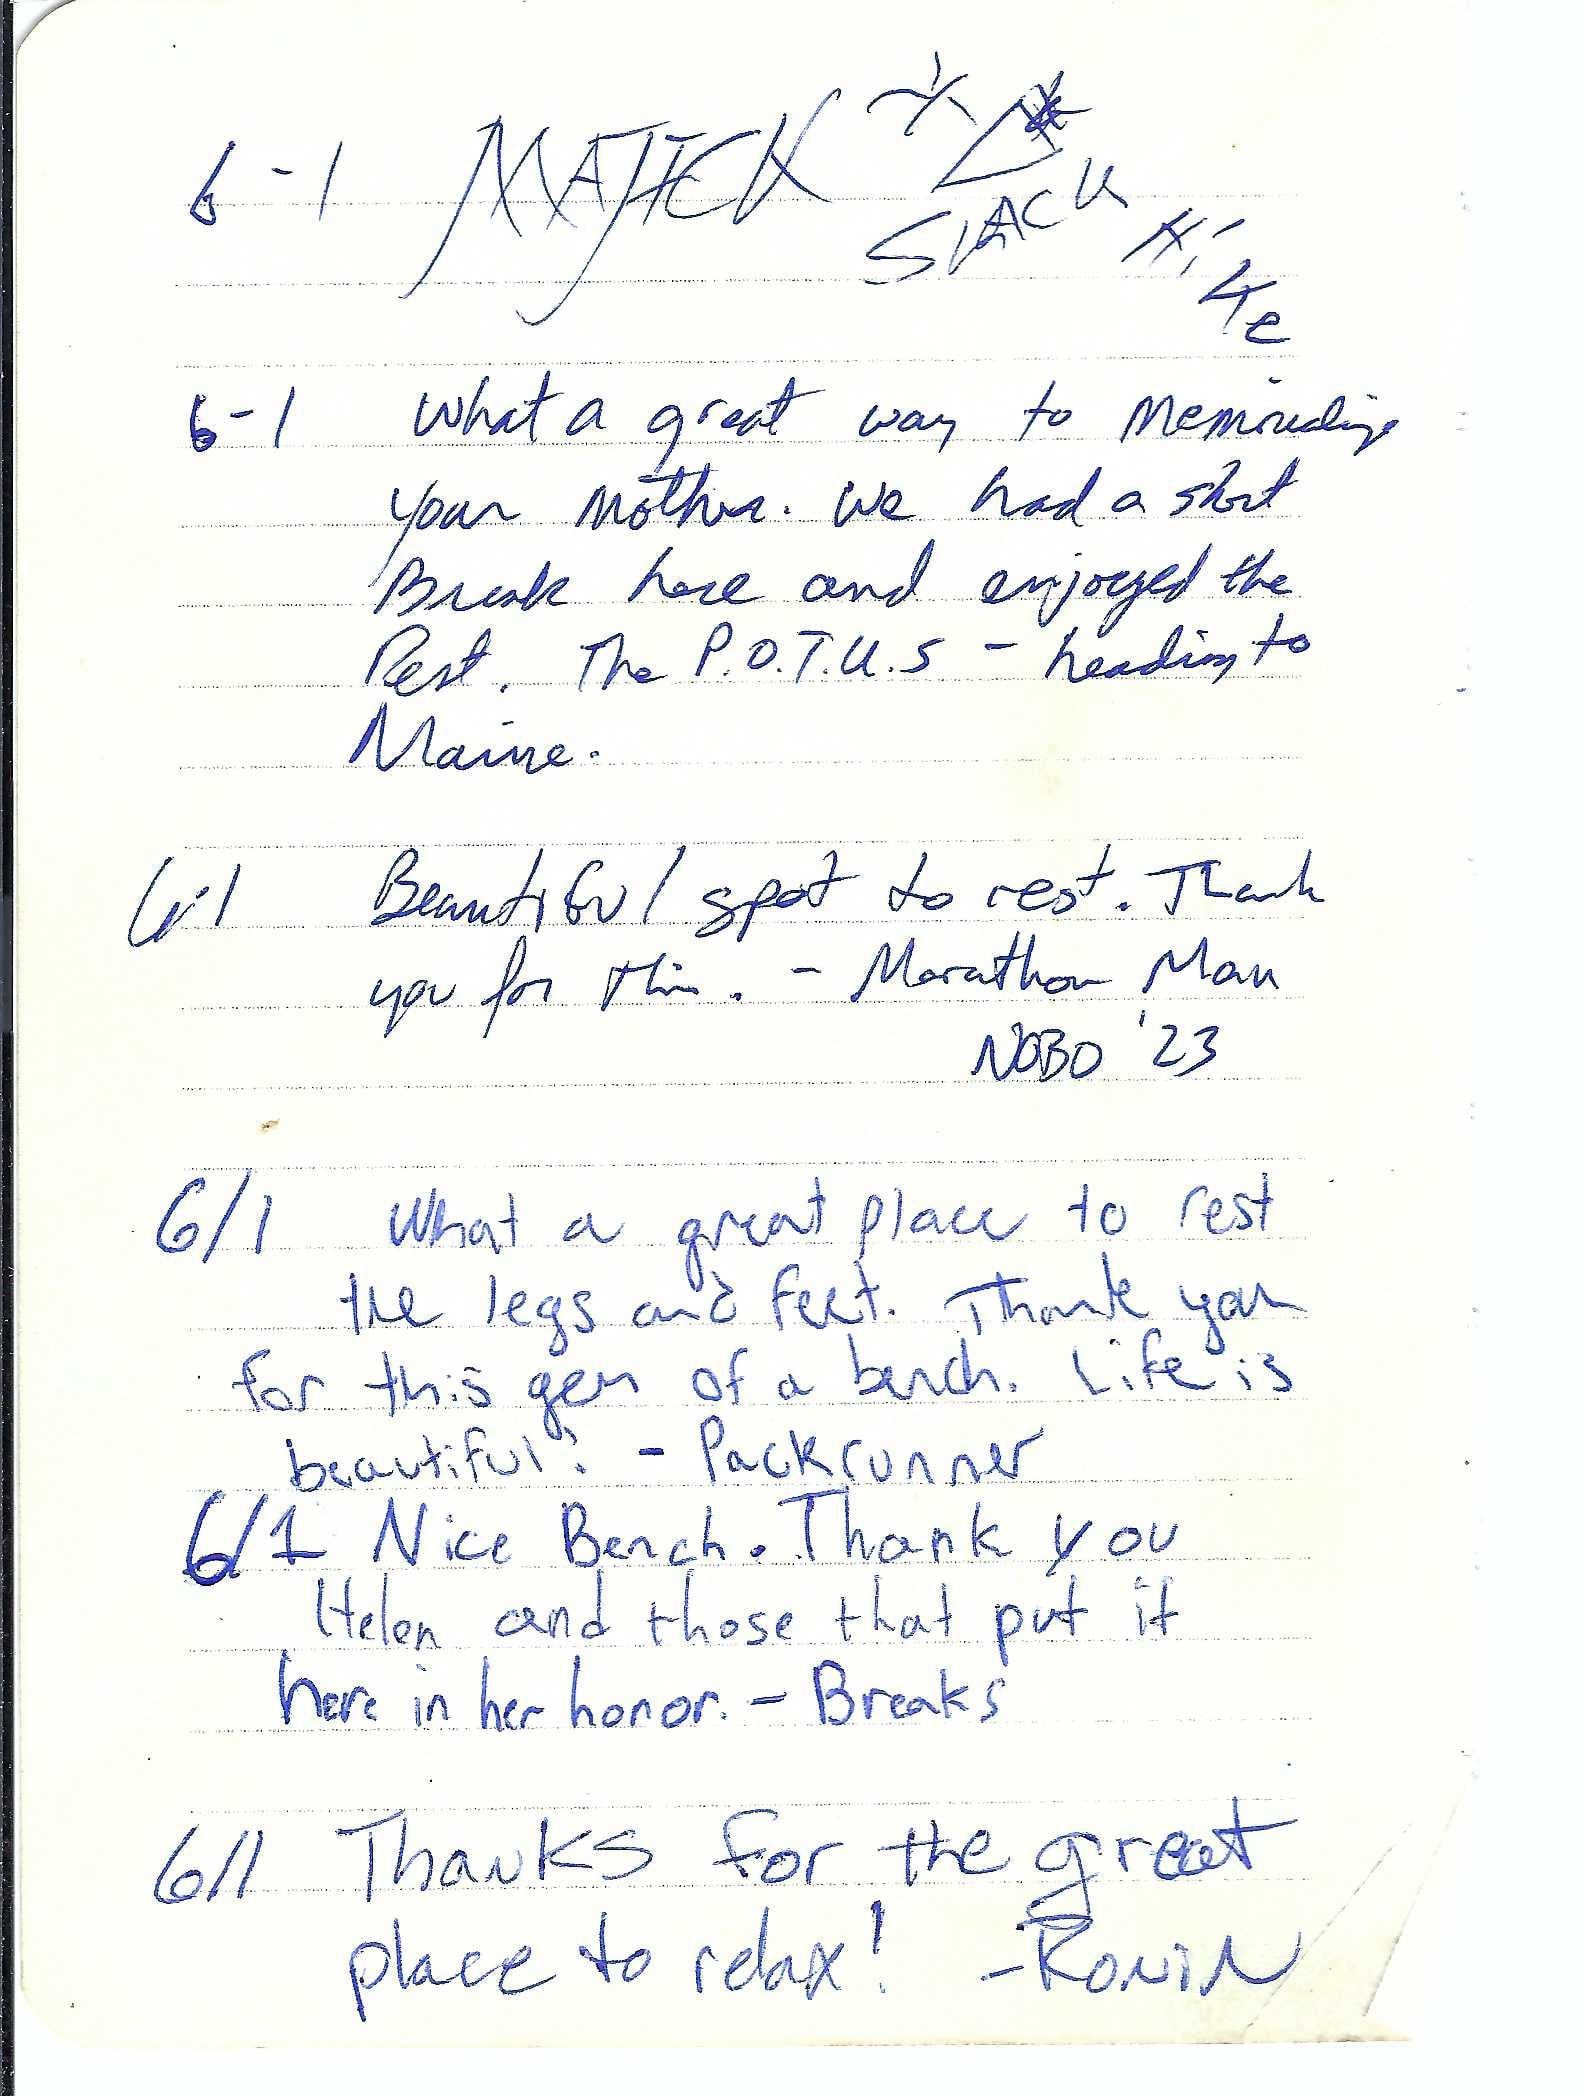 6-1 MAJICK
SLACK
6-1 What a great way to
your Mother. We had a short
Break here and enjoyed the
Rest. The P.O.T.U.S - heading to
Maine.
6-1 Beautiful spot to rest. Thank
you for this. - Marathon Man
NOBO '23
6/1 What a great place to rest
the legs and feet. Thank you
for this gem of a bench. Life is
beautiful! - Packrunner
6/1 Nice Bench. Thank you
Helen and those that put it
here in her honor. - Breaks
6/1 Thanks for the great
place to relax! - RONIN